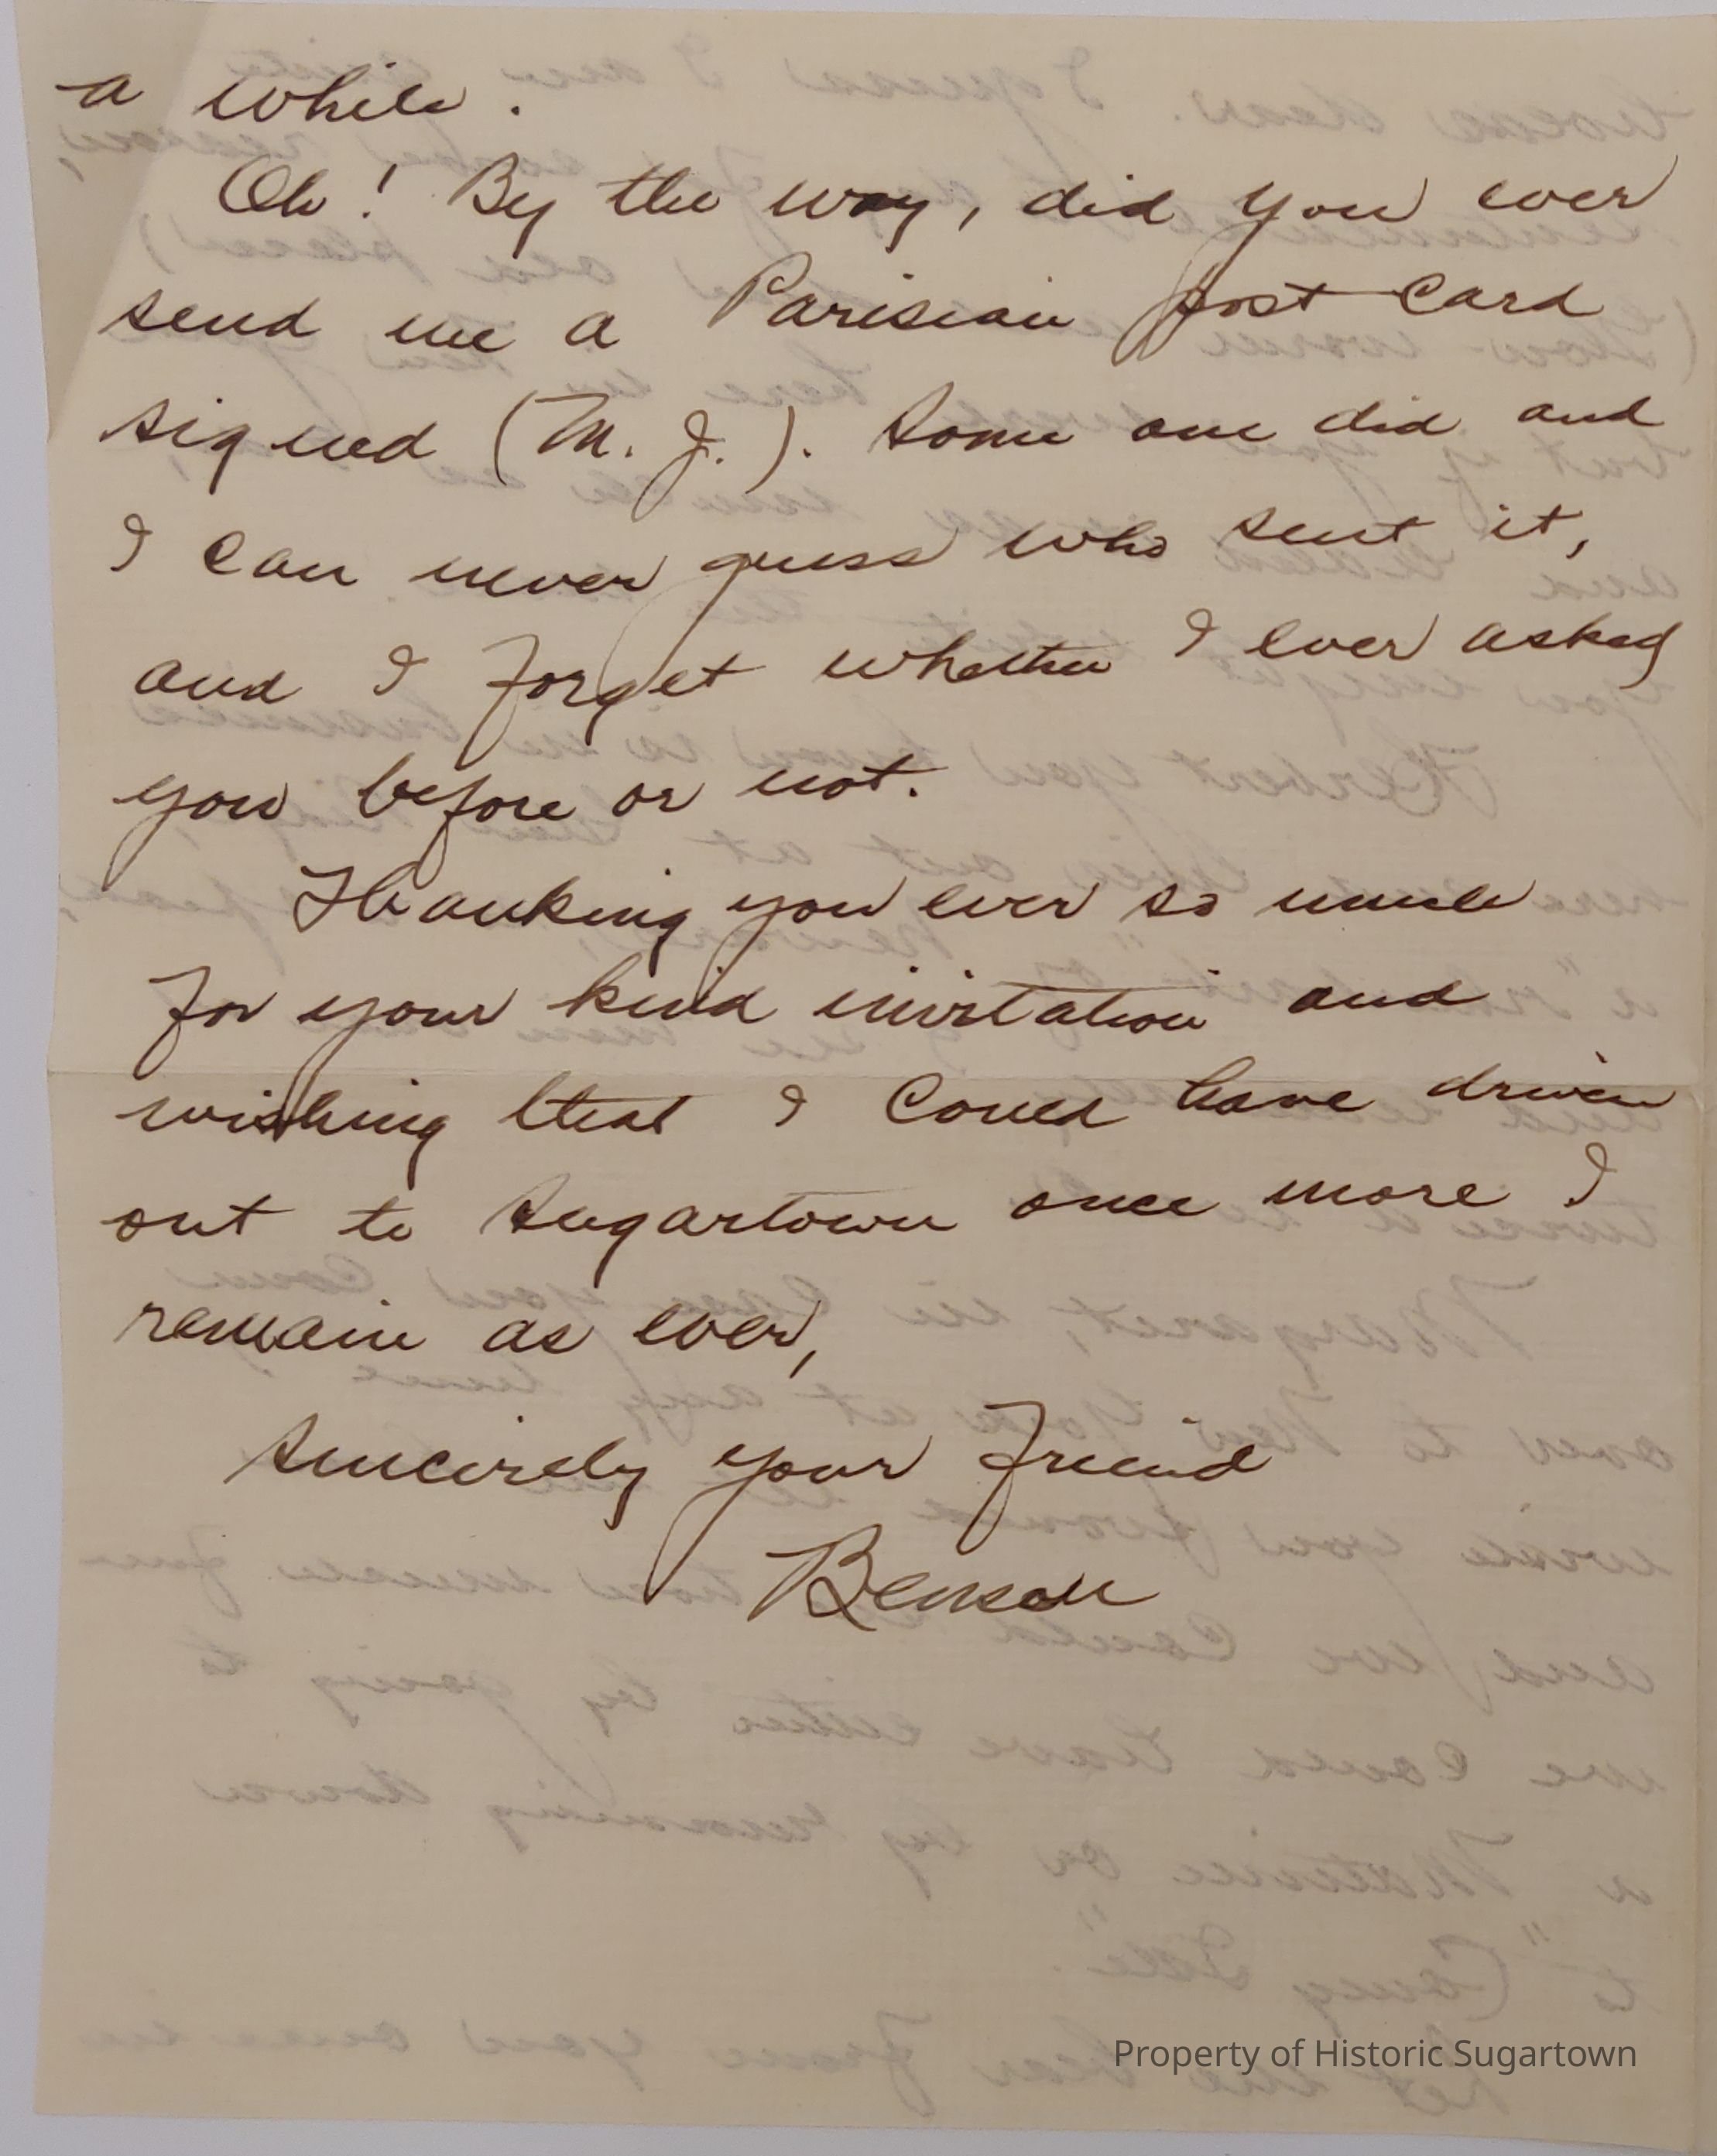 a while.
Oh! By the way, did you ever
send me a Parisian post card
signed (M. J.). Some one did and
I can never guess who sent it,
and I forget whether I ever asked
you before or not.
Thanking you ever so much
for your kind invitation and
wishing that I could have driven
out to Sugartown once more I
remain as ever,
Sincerely your friend
Benson
Property of Historic Sugartown